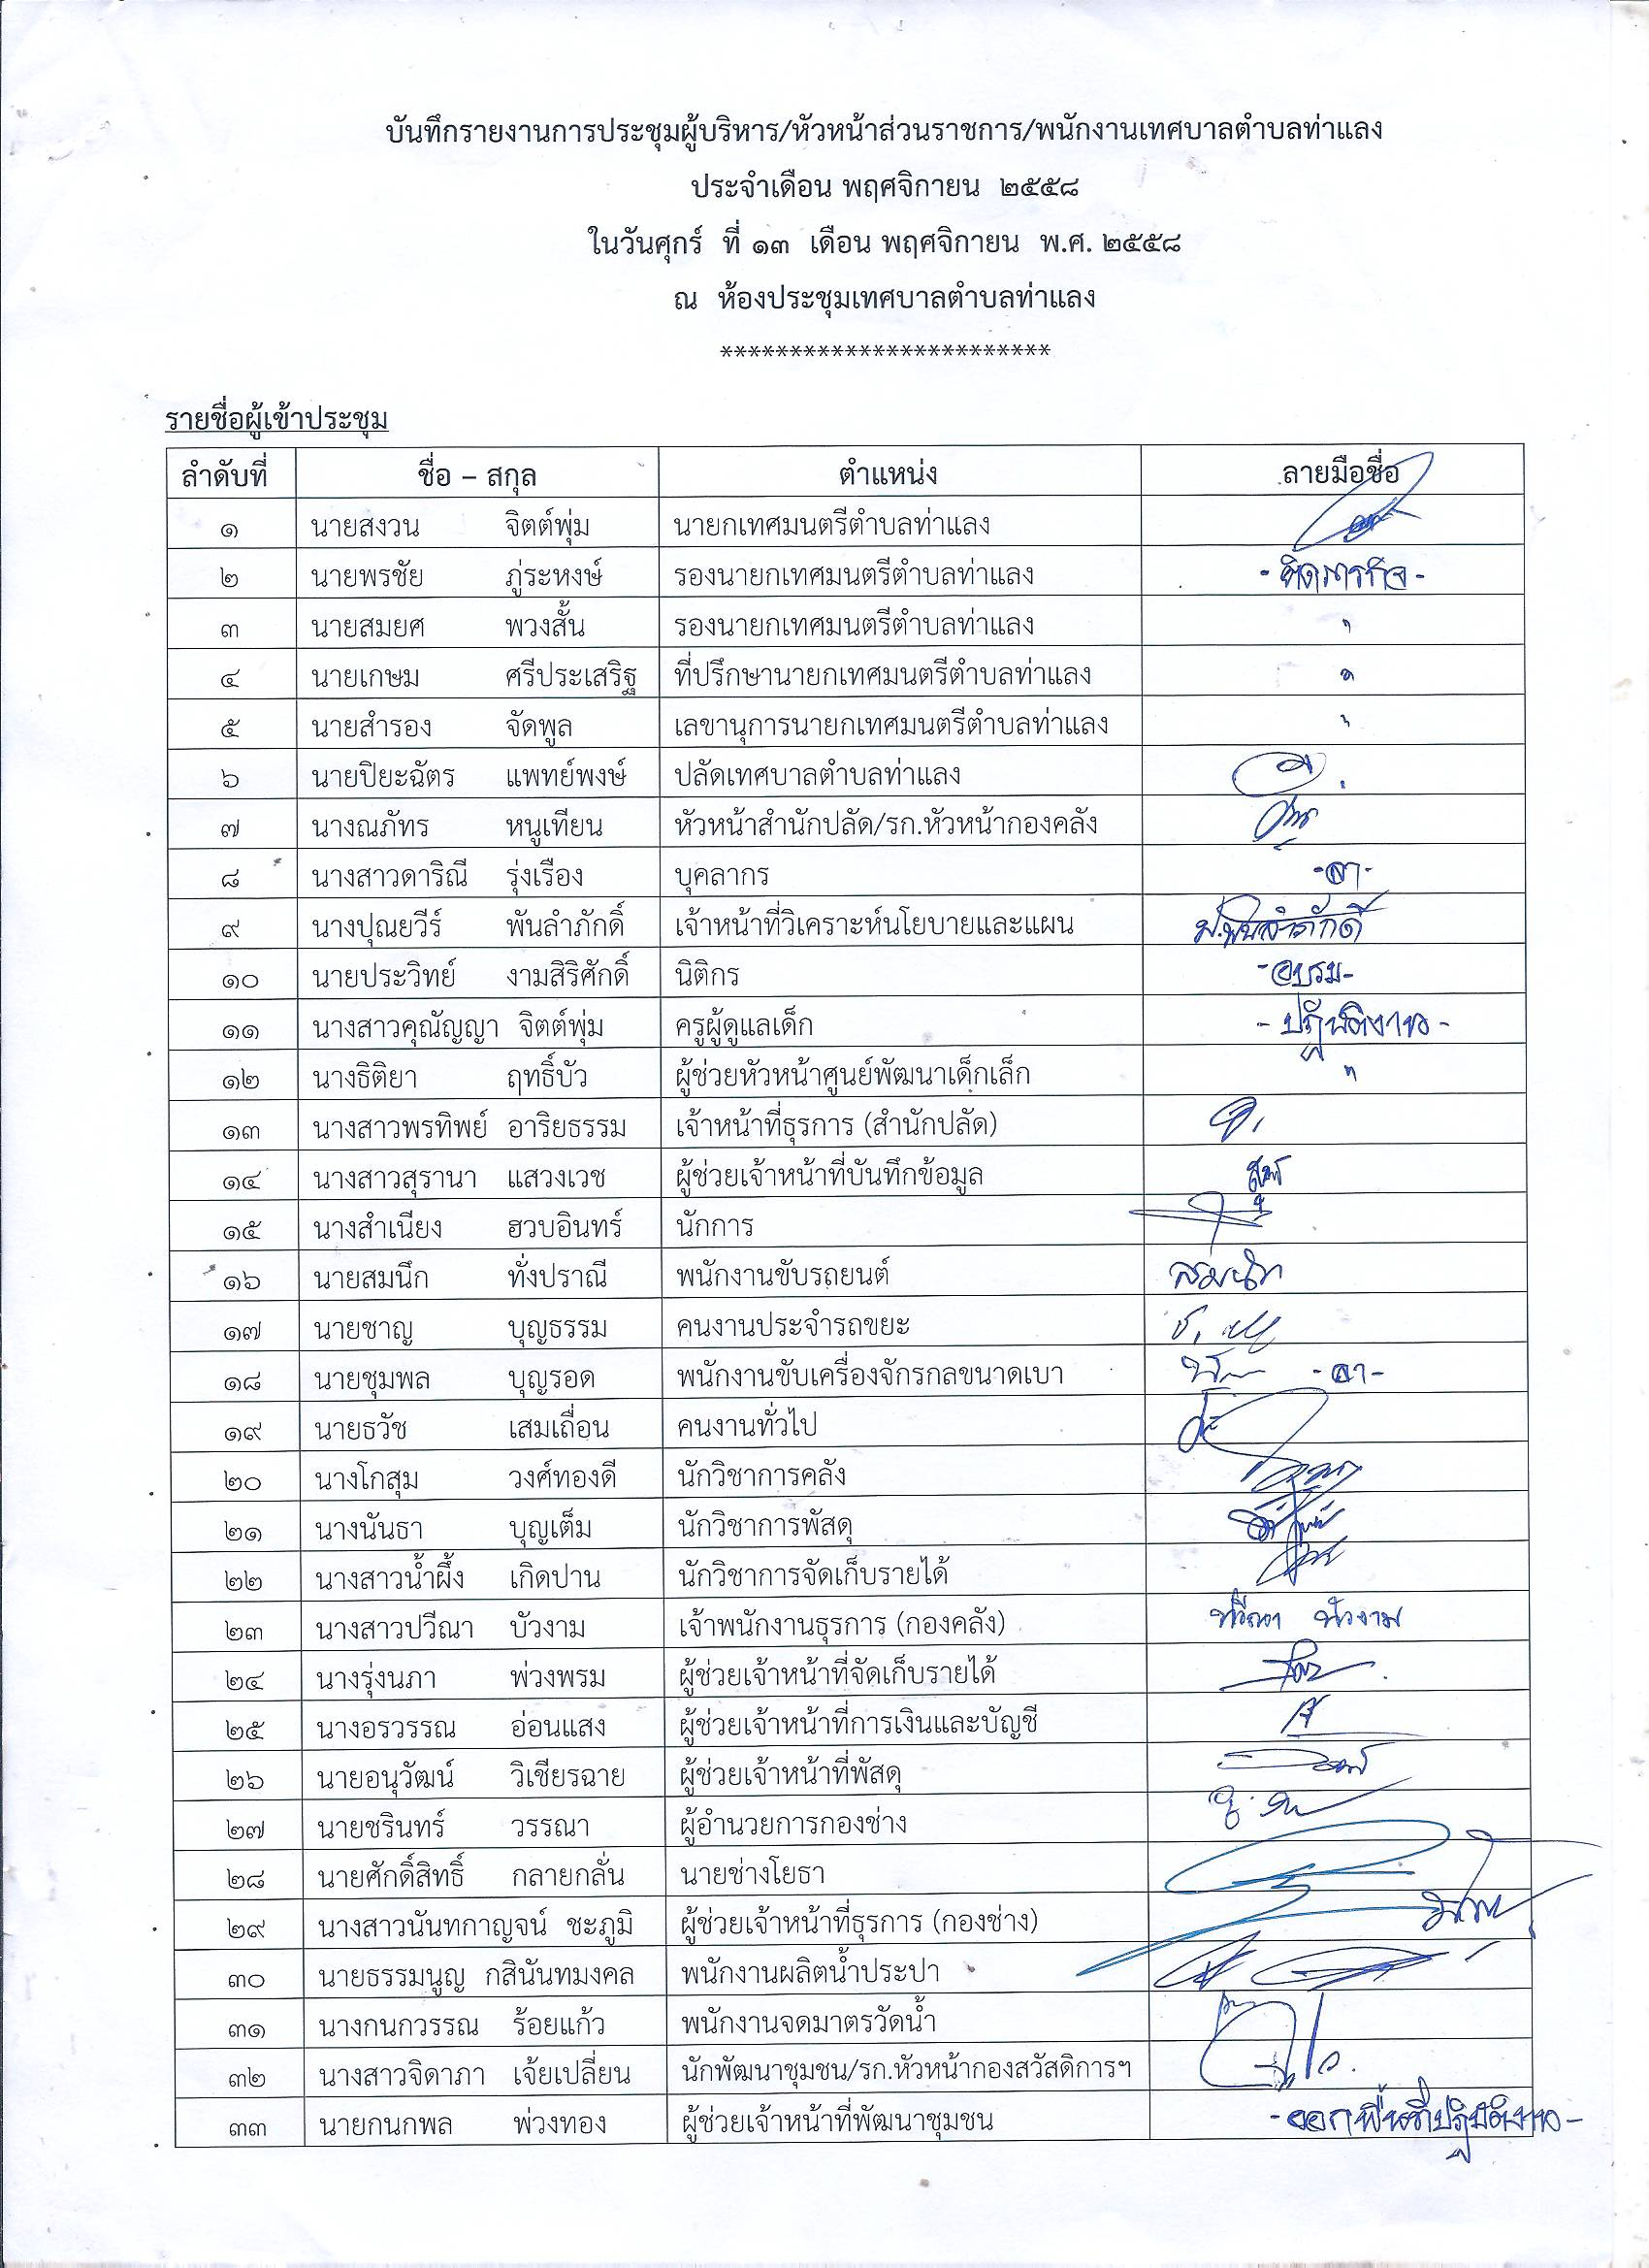 บันทึกรายงานการประชุมผู้บริหาร/หัวหน้าส่วนราชการ/พนักงานเทศบาลตำบลท่าแลง
ประจำเดือน พฤศจิกายน ๒๕๕๘
ในวันศุกร์ ที่ ๑๓ เดือน พฤศจิกายน พ.ศ. ๒๕๕๘
ณ ห้องประชุมเทศบาลตำบลท่าแลง
************************
รายชื่อผู้เข้าประชุม
ลำดับที่ ชื่อ – สกุล ตำแหน่ง ลายมือชื่อ
๑ นายสงวน จิตต์พุ่ม นายกเทศมนตรีตำบลท่าแลง
๒ นายพรชัย ภู่ระหงษ์ รองนายกเทศมนตรีตำบลท่าแลง -ติดภารกิจ-
๓ นายสมยศ พวงสั้น รองนายกเทศมนตรีตำบลท่าแลง "
๔ นายเกษม ศรีประเสริฐ ที่ปรึกษานายกเทศมนตรีตำบลท่าแลง "
๕ นายสำรอง จัดพูล เลขานุการนายกเทศมนตรีตำบลท่าแลง "
๖ นายปิยะฉัตร แพทย์พงษ์ ปลัดเทศบาลตำบลท่าแลง
๗ นางณภัทร หนูเทียน หัวหน้าสำนักปลัด/รก.หัวหน้ากองคลัง
๘ นางสาวดาริณี รุ่งเรือง บุคลากร -ลา-
๙ นางปุณยวีร์ พันลำภักดิ์ เจ้าหน้าที่วิเคราะห์นโยบายและแผน ป.พันลำภักดิ์
๑๐ นายประวิทย์ งามสิริศักดิ์ นิติกร -อบรม-
๑๑ นางสาวคุณัญญา จิตต์พุ่ม ครูผู้ดูแลเด็ก -ปฏิบัติงาน-
๑๒ นางธิติยา ฤทธิ์บัว ผู้ช่วยหัวหน้าศูนย์พัฒนาเด็กเล็ก "
๑๓ นางสาวพรทิพย์ อาริยธรรม เจ้าหน้าที่ธุรการ (สำนักปลัด)
๑๔ นางสาวสุรานา แสวงเวช ผู้ช่วยเจ้าหน้าที่บันทึกข้อมูล
๑๕ นางสำเนียง ฮวบอินทร์ นักการ
๑๖ นายสมนึก ทั่งปราณี พนักงานขับรถยนต์ สมนึก
๑๗ นายชาญ บุญธรรม คนงานประจำรถขยะ
๑๘ นายชุมพล บุญรอด พนักงานขับเครื่องจักรกลขนาดเบา -ลา-
๑๙ นายธวัช เสมเถื่อน คนงานทั่วไป
๒๐ นางโกสุม วงศ์ทองดี นักวิชาการคลัง
๒๑ นางนันธา บุญเต็ม นักวิชาการพัสดุ
๒๒ นางสาวน้ำผึ้ง เกิดปาน นักวิชาการจัดเก็บรายได้
๒๓ นางสาวปวีณา บัวงาม เจ้าพนักงานธุรการ (กองคลัง) ปวีณา บัวงาม
๒๔ นางรุ่งนภา พ่วงพรม ผู้ช่วยเจ้าหน้าที่จัดเก็บรายได้
๒๕ นางอรวรรณ อ่อนแสง ผู้ช่วยเจ้าหน้าที่การเงินและบัญชี
๒๖ นายอนุวัฒน์ วิเชียรฉาย ผู้ช่วยเจ้าหน้าที่พัสดุ
๒๗ นายชรินทร์ วรรณา ผู้อำนวยการกองช่าง
๒๘ นายศักดิ์สิทธิ์ กลายกลั่น นายช่างโยธา
๒๙ นางสาวนันทกาญจน์ ชะภูมิ ผู้ช่วยเจ้าหน้าที่ธุรการ (กองช่าง)
๓๐ นายธรรมนูญ กสินันทมงคล พนักงานผลิตน้ำประปา
๓๑ นางกนกวรรณ ร้อยแก้ว พนักงานจดมาตรวัดน้ำ
๓๒ นางสาวจิดาภา เจ้ยเปลี่ยน นักพัฒนาชุมชน/รก.หัวหน้ากองสวัสดิการฯ
๓๓ นายกนกพล พ่วงทอง ผู้ช่วยเจ้าหน้าที่พัฒนาชุมชน -ออกพื้นที่ปฏิบัติงาน-